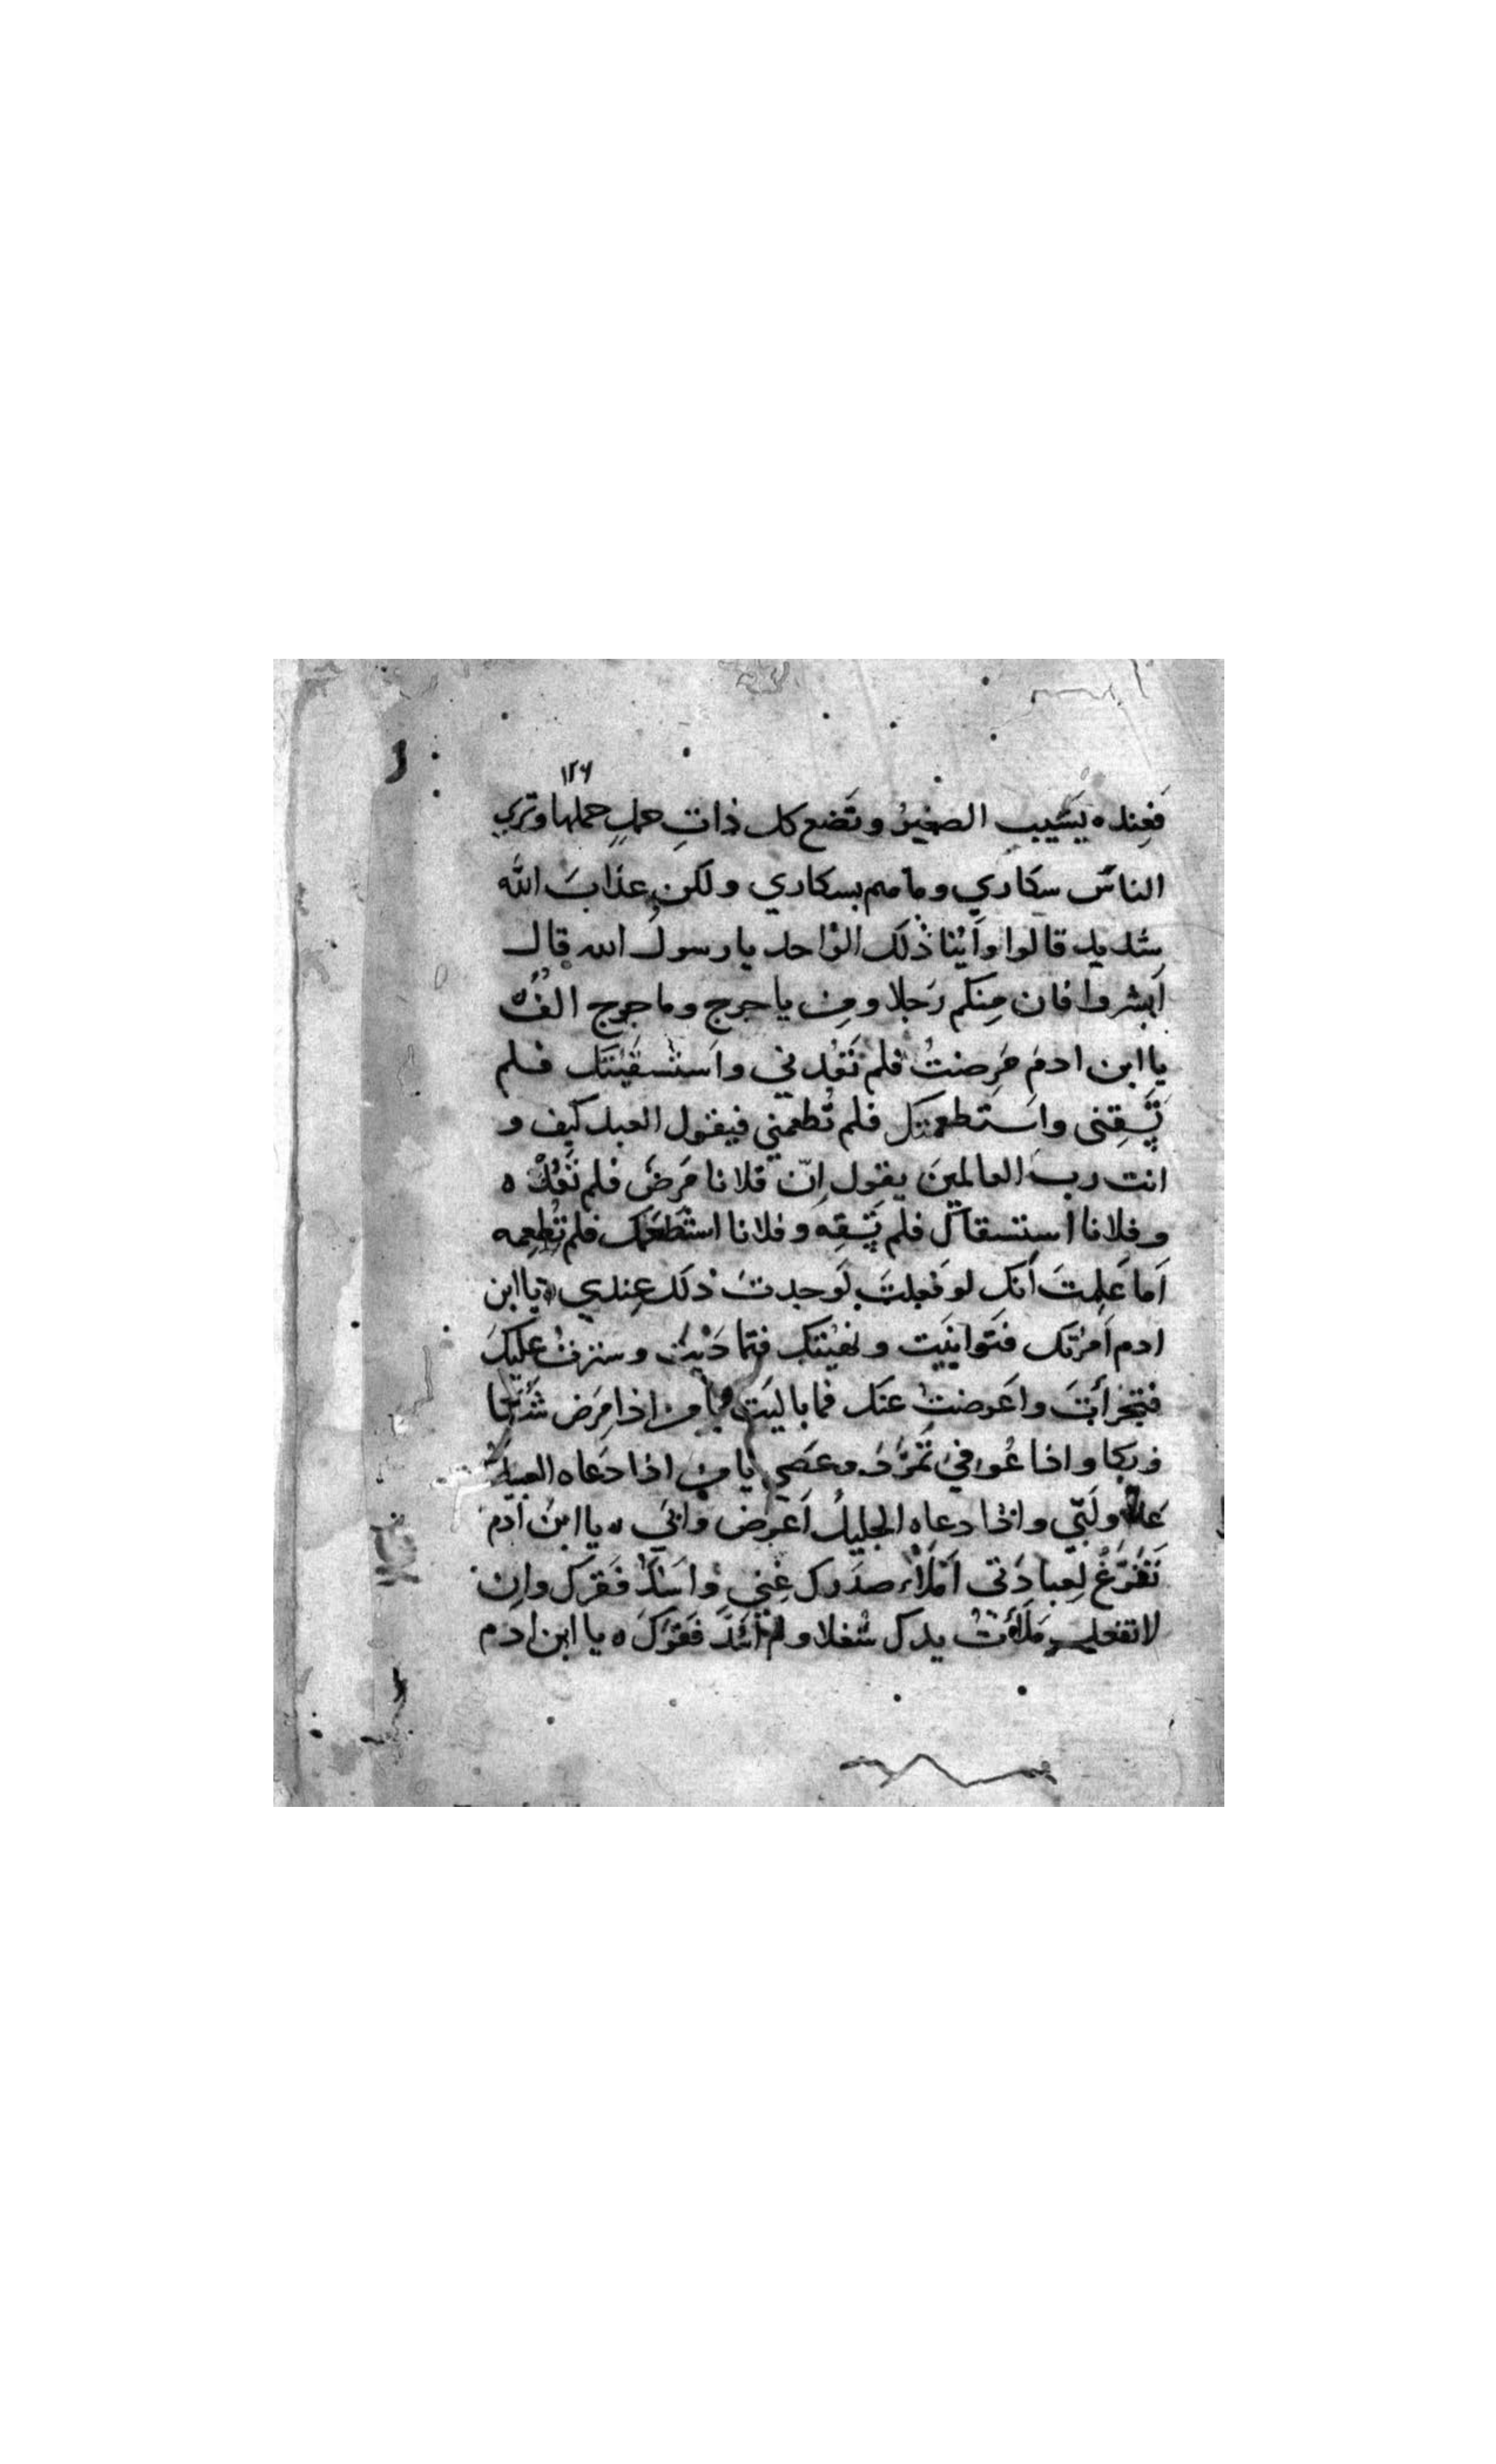 ١٢٦
فَعِنده يَشيبُ الصغيرُ وتَضع كل ذاتِ حملٍ حملها وتري
الناسَ سكاري وما هم بسكاري ولكن عذابَ الله
شديد قالوا وأيُنا ذلك الوَاحد يا رسولَ الله قال
اَبشروا فان مِنكم رَجلا ومِن ياجوج وماجوج الفُ ه
يا ابن ادمَ مَرِضتُ فلم تَعُدني واستسقَيتك فلم
تَسقِني واستطعمتك فلم تُطعمني فيقول العبد كيف و
انت رب العالمينَ يقول اِنّ فلانا مَرضَ فلم تَعُدْ ه
وفلانا استسقاك فلم تَسقِه وفلانا استَطعَمَك فلم تُطعِمه
اَما عَلِمتَ اَنك لو فَعلتَ لَوجدتَ ذلك عِندي ه يا ابن
ادم اَمرْتك فتَوانَيت ونهيْتك فتمادَيْتَ وسترتُ عليكَ
فتجَرأْتَ واَعرضتُ عنك فما باليَت يا من اذا مرَض شَكَا
وبكا واذا عُوفيَ تمَرَّدَ وعَصي يا من اذا دَعاه العبيدُ
عدا ولَبّي واذا دعاه الجليلُ اَعرض وناَي ه يا ابنَ ادم
تَفَرَّغْ لِعبادَتي اَملَأْ صدَرك غِني واَسُدَّ فَقرك وان
لا تفعل مَلَأْتُ يدك شغلا ولم اَسُدَّ فَقرَكَ ه يا ابن ادم